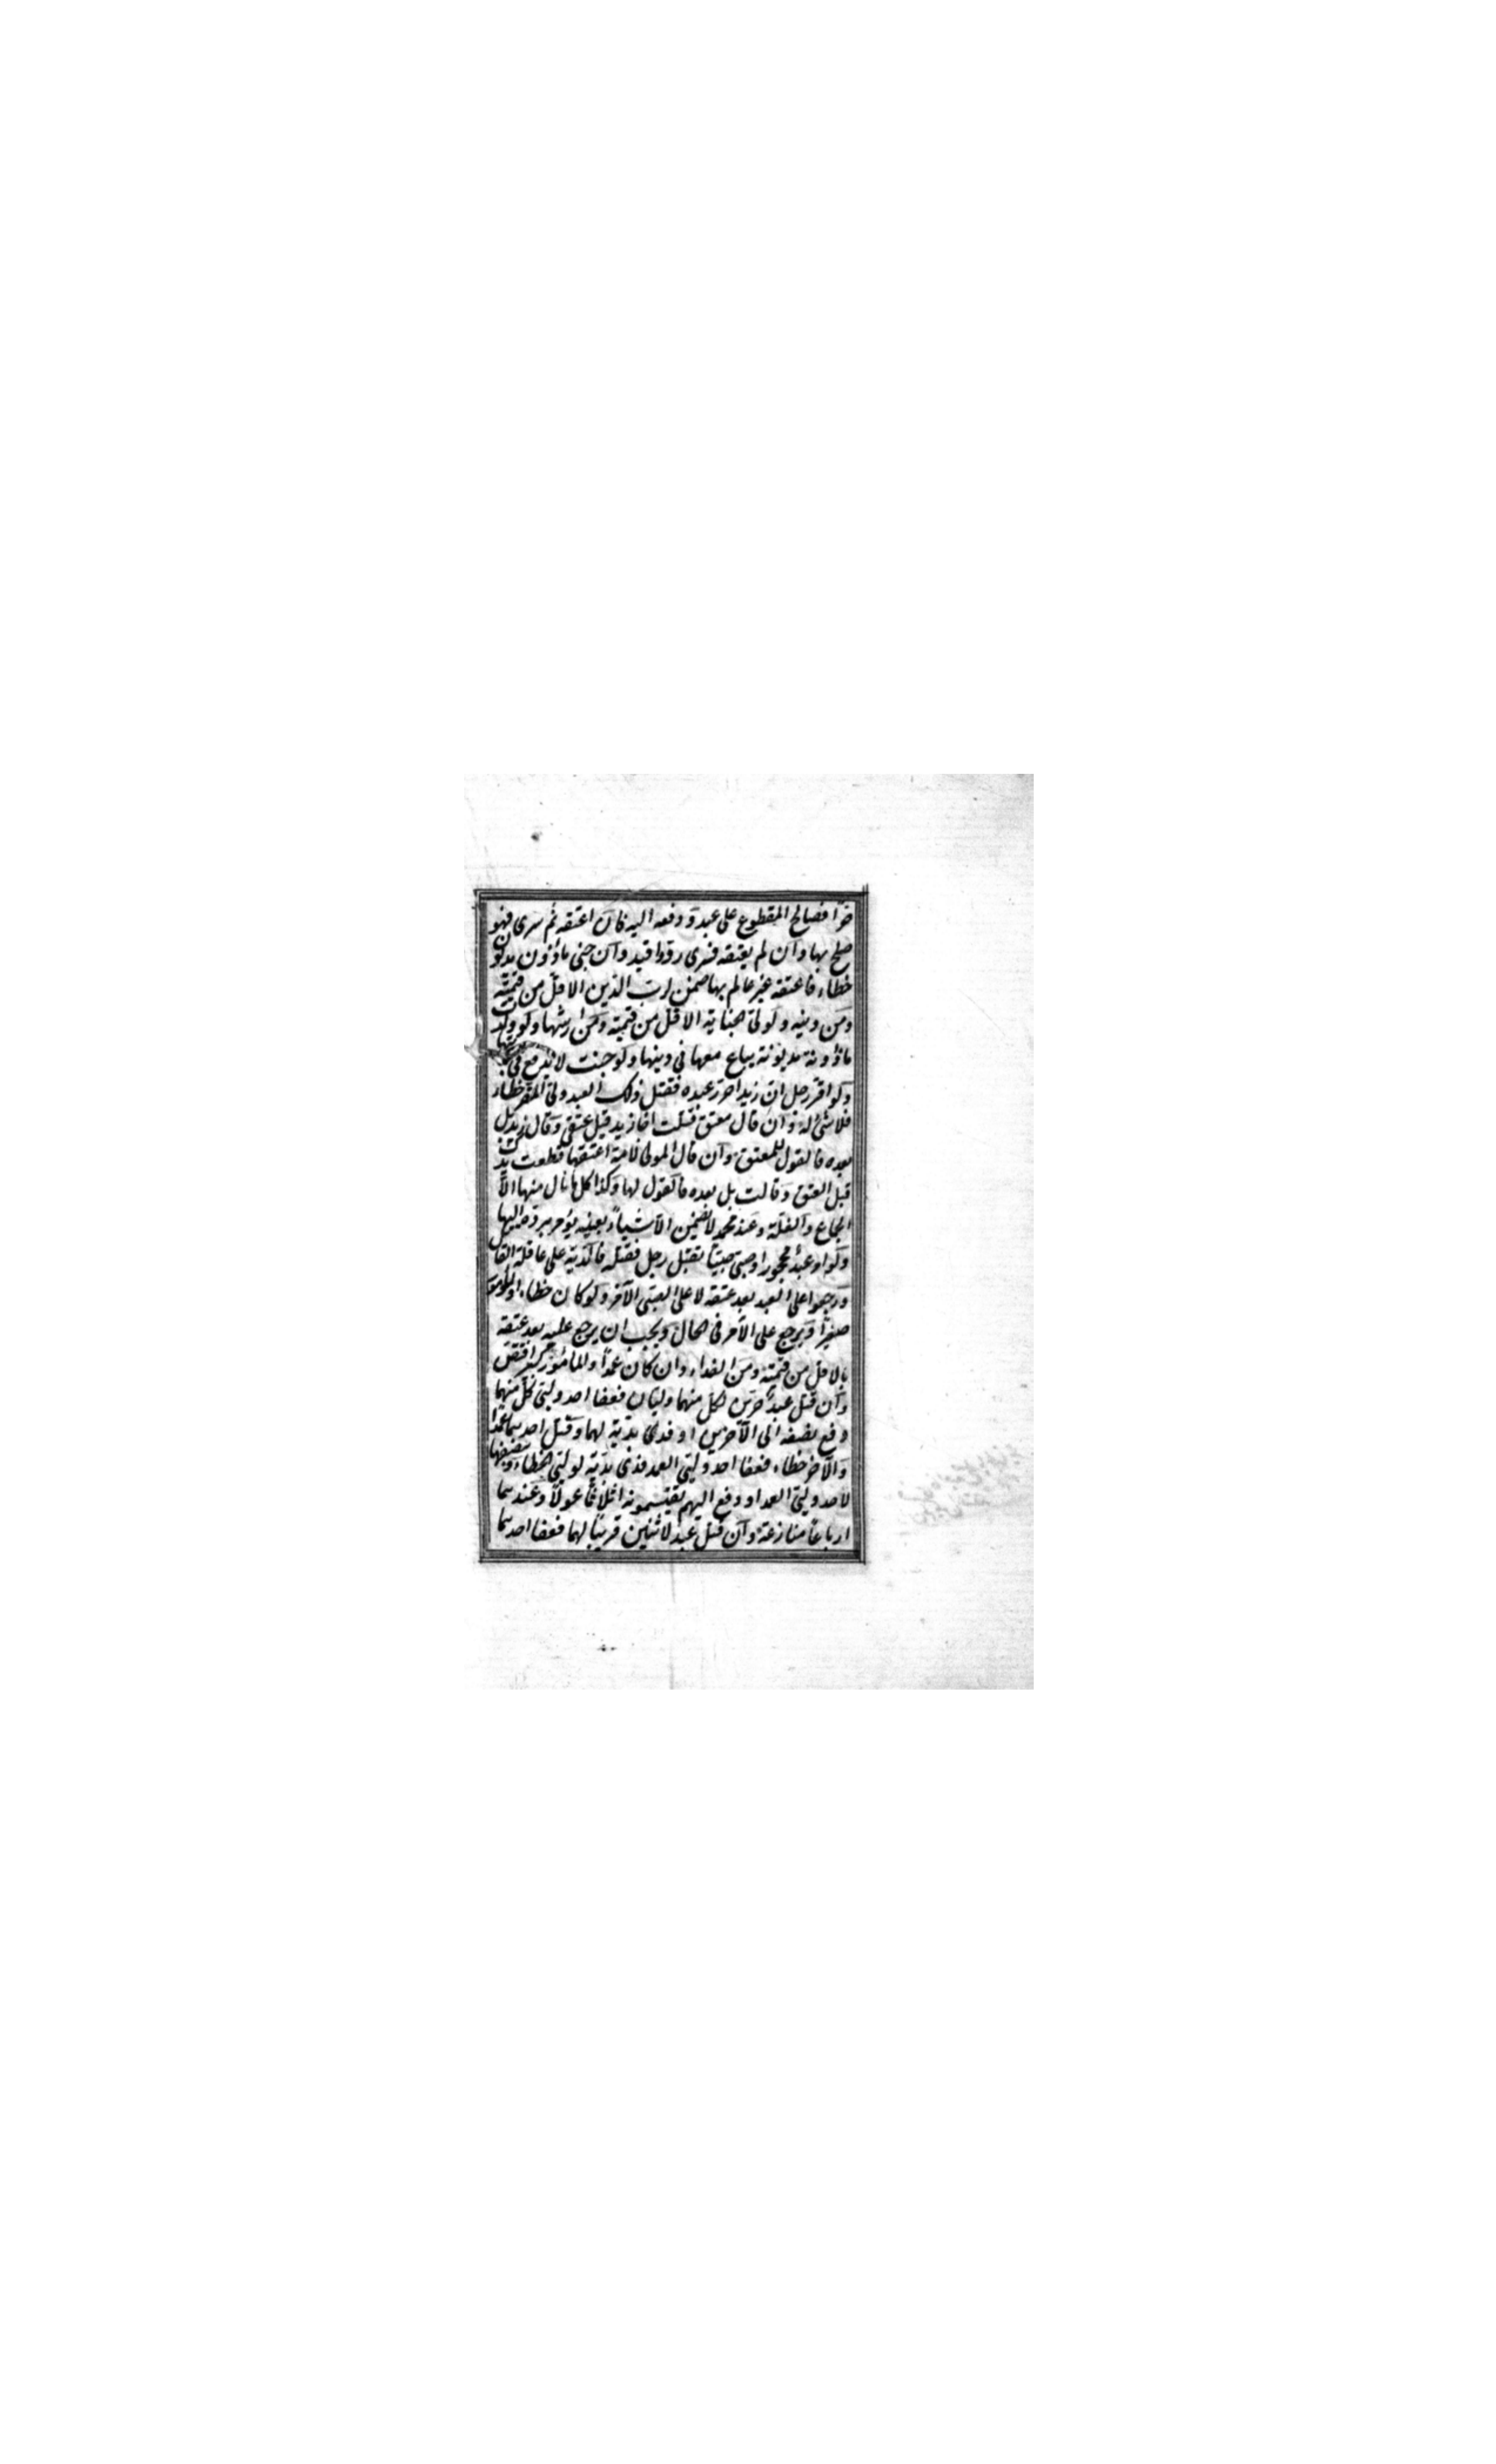 حرّا فصالح المقطوع على عبد ودفعه اليه فان اعتقه ثم سرى فهو
صلح بها وان لم يعتقه فسرى رد واقيد وان جنى ماذون مديون
خطاء فاعتقه غير عالم بها ضمن لرب الدين الاقل من قيمته
ومن دينه ولولىّ الجناية الاقل من قيمته ومن ارشها ولو ولدت
ماذونة مديونة يباع معها فى دينها ولو جنت لا يدفع فى
ولو اقر رجل ان زيدا حرر عبده فقتل ذلك العبد ولىّ المقر خطاء
فلا شئ له وان قال معتق قتلت اخا زيد قبل عتقى وقال زيد بل
بعده فالقول للمعتق وان قال المولى لامة اعتقها قطعت يدك
قبل العتق وقالت بل بعده فالقول لها وكذا كل ما نال منها الاّ
الجماع والغلة وعند محمد لا يضمن الا شيأ بعينه يؤمر برده اليها
ولو امر عبد محجور او صبىّ صبيّا بقتل رجل فقتله فالدية على عاقلة القاتل
ورجعوا على العبد بعد عتقه لا على الصبىّ الآمر ولو كان خطاء والمأمور
صغيرا ويرجع على الآمر فى الحال ويجب ان يرجع عليه بعد عتقه
بالاقل من قيمته ومن الفداء وان كان عمدا والمأمور كبيرا اقتص
وان قتل عبد حرّين لكل منهما وليّان فعفا احد وليّى كل منهما
دفع نصفه الى الآخرين او فدى بدية لهما وقتل احدهما عمدا
والآخر خطاء فعفا احد وليّى العمد فدى بدية لوليّى الخطاء وبنصفها
لاحد وليّى العمد او دفع اليهم يقتسمونه اثلاثا عولا وعندهما
ارباعا منازعة وان قتل عبد لاثنين قريبا لهما فعفا احدهما